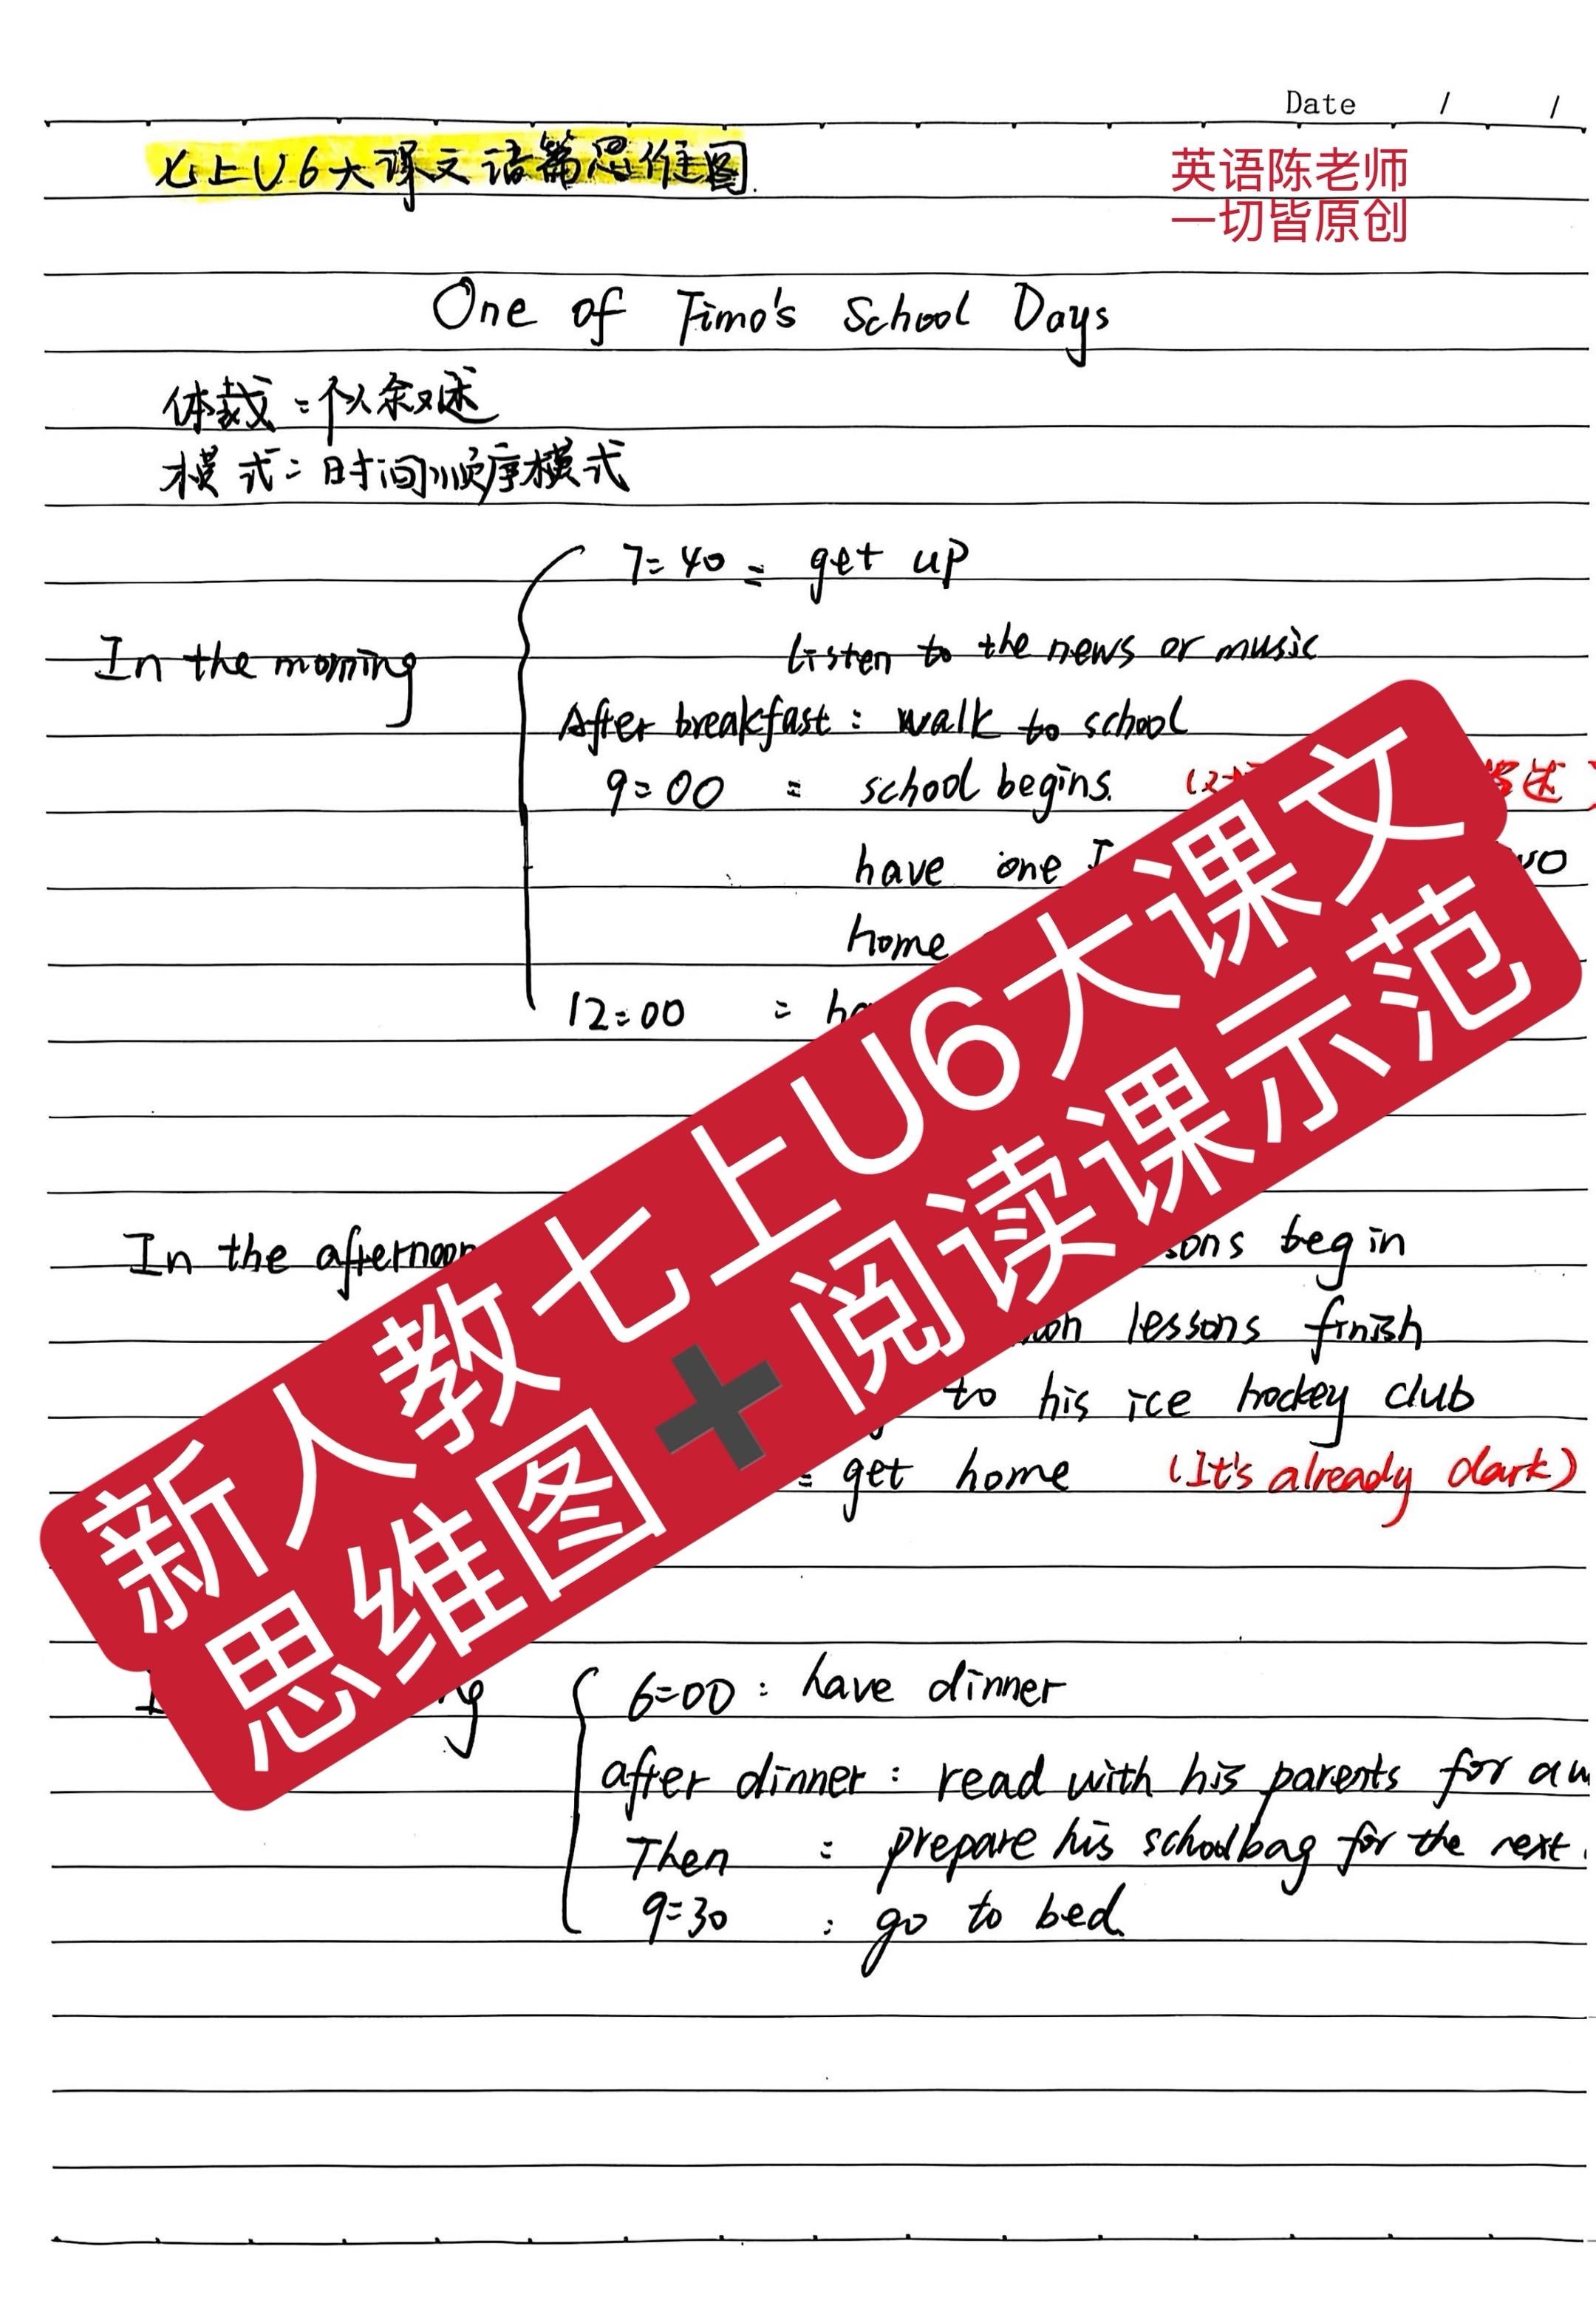 Date / /
七上U6大课文语篇思维图.
英语陈老师
一切皆原创
One of Timo's School Days
体裁:个人叙述
模式:时间顺序模式
In the morning
7:40: get up
listen to the news or music
After breakfast: walk to school
9:00 : school begins.
have one
home
12:00 :
In the afternoon
begin
lessons finish
to his ice hockey club
: get home (It's already dark)
6:00: have dinner
after dinner: read with his parents for
Then : prepare his schoolbag for the next
9:30 : go to bed
新人教七上U6大课文
思维图➕阅读课示范